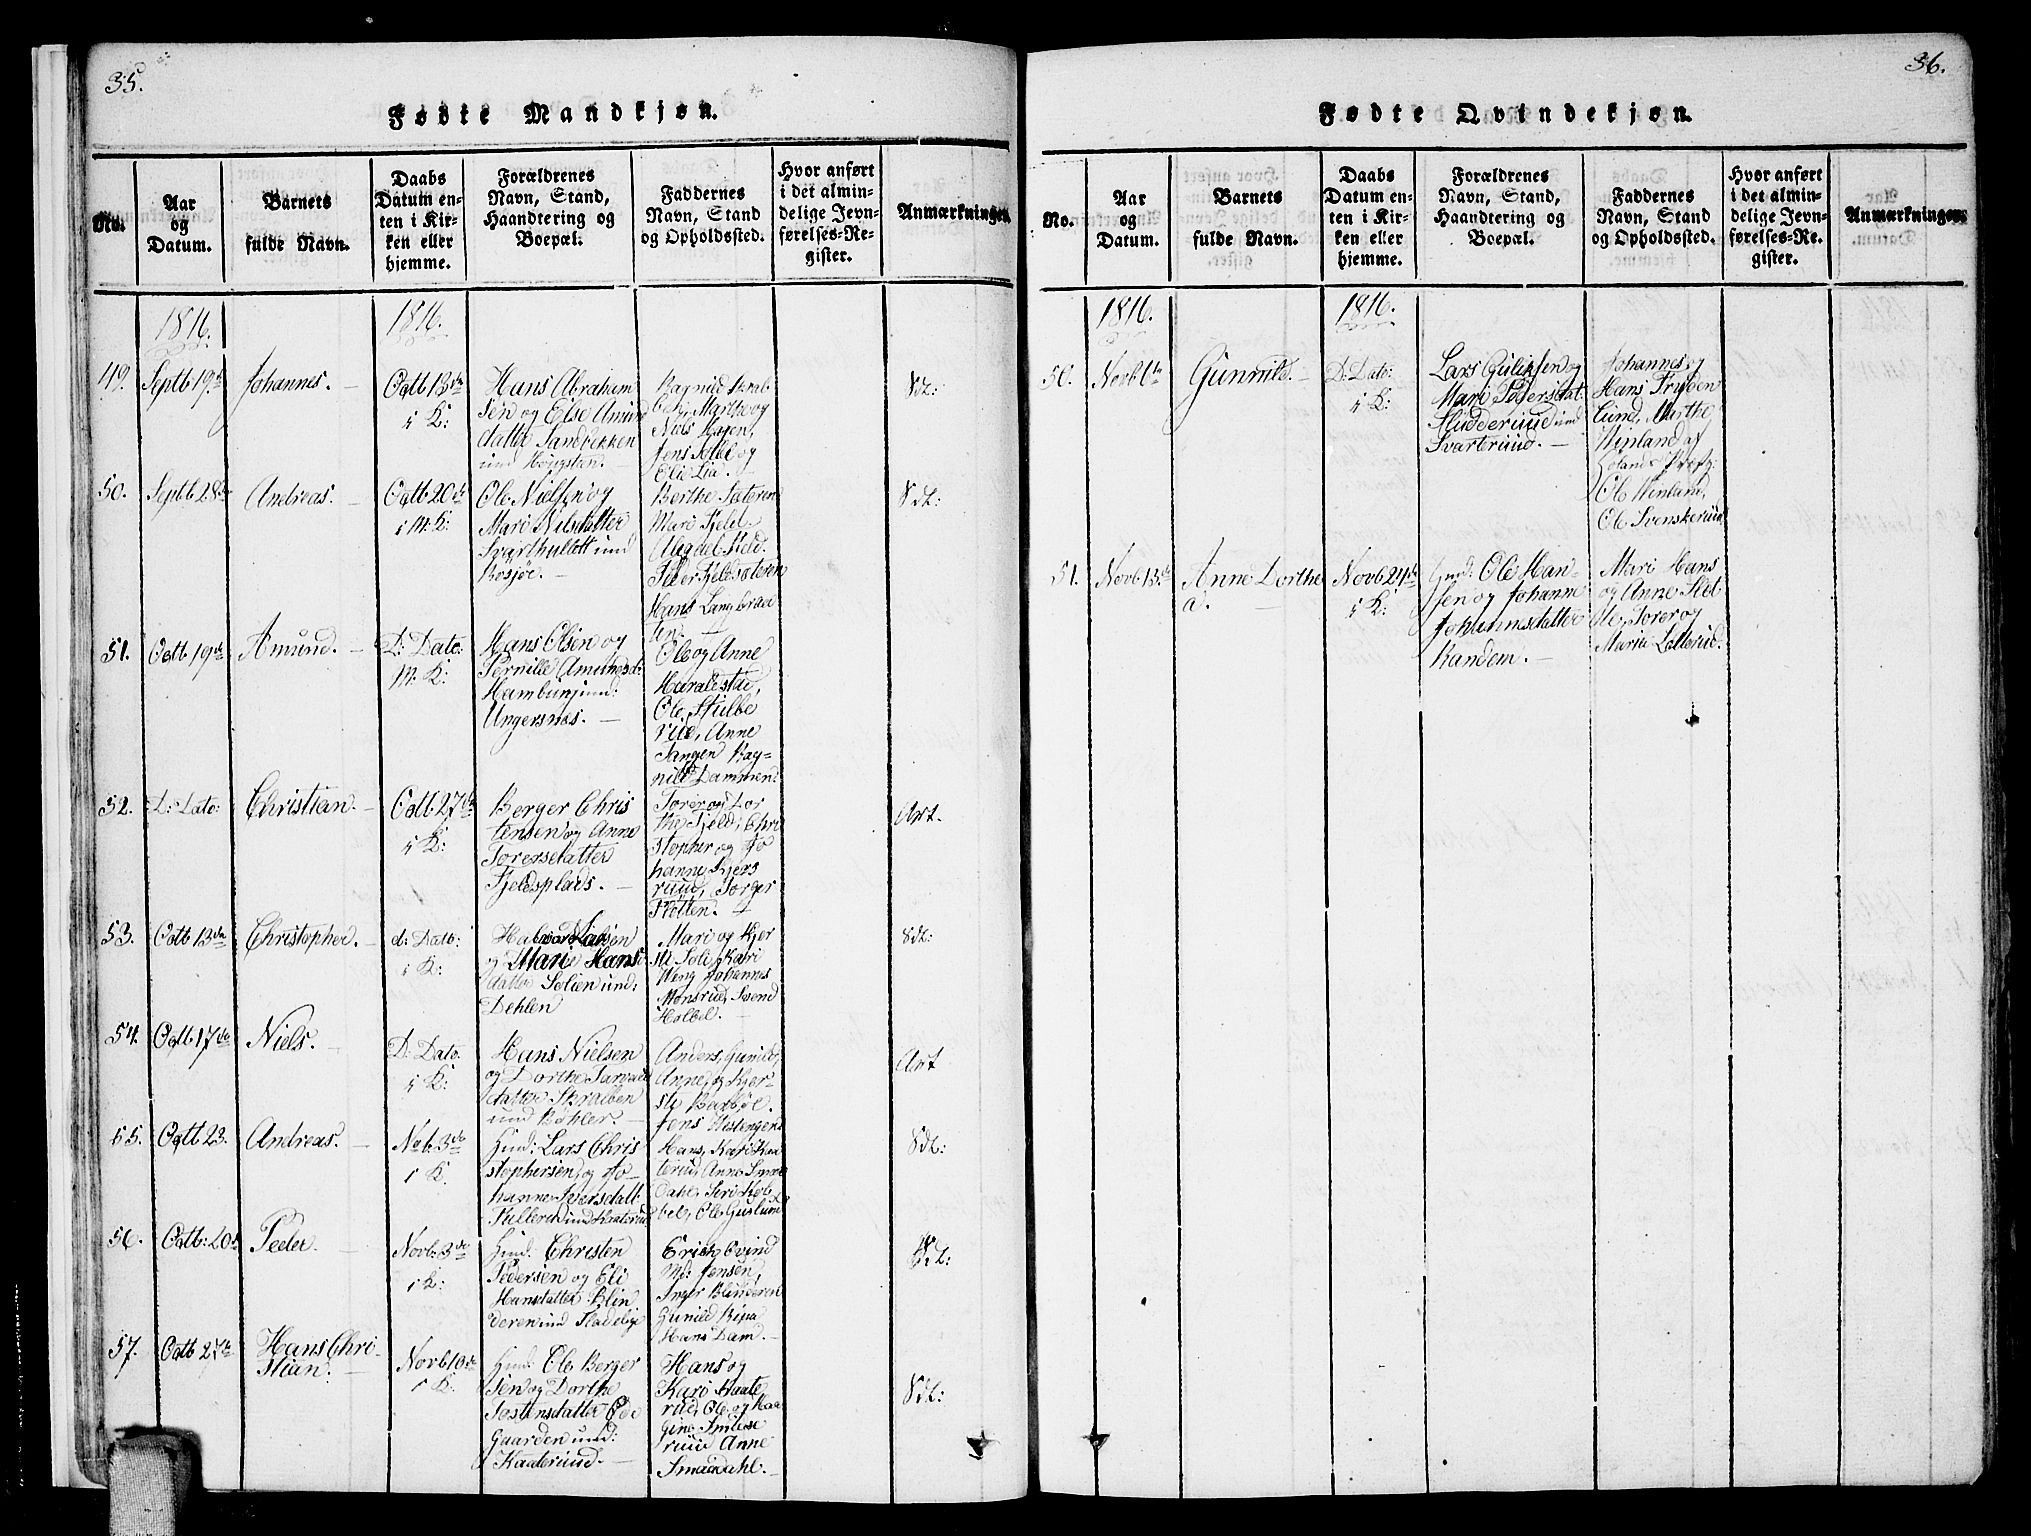 35.
Fødte Mandkjøn.
No.
Aar og Datum.
Barnets fulde Navn.
Daabs Datum enten i Kirken eller hjemme.
Forældrenes Navn, Stand, Haandtering og Boepæl.
Faddernes Navn, Stand og Opholdssted.
Hvor anført i det almindelige Jevnførelses-Register.
Anmærkninger.
1816.
1816.
49.
Septb 19de
Johannes.
Octb 13de
i K:
Hans Abraham
sen og Else Amund
datter Sandbekken
und
Marthe og
Niels Hagen,
Jens Solbe og
Eli Lia.
Sdl:
50.
Septb 28de
Andreas.
Octb 20de
i M. K:
Ole Nielsen og
Mari Nilsdatter
Svarthullett und
Rosjøe.
Berthe Sæteren
Mari Fjeld.
Peder Fjeldsæteren
Hans Langbraa
ten.
Sdl:
51.
Octb 19de
Amund.
D: Dato:
M. K:
Hans Olsen og
Pernille Amundsd:
und:
Ungersnæs.
Ole og Anne
Haralestad,
Ole Stulbe
rud, Anne
Tangen Rag-
nild Dammen.
52.
D: Dato:
Christian.
Octb 27de
i K:
Berger Chris
tensen og Anne
Torersdatter
Fjeldsplads.
Torer og Dor
the Fjeld, Chri
stopher og Jo
hanne Kjers
ruud, Torger
Art.
53.
Octb 13de
Christopher.
d: Dato:
i K:
Halvor Larsen
og Marie Hans
datter Solien und:
Dehlen
Mari og Kjer
sti Soli, Kari
Weng Johannes
Monsrud, Svend
Holbel.
Sdl:
54.
Octb 17de
Niels.
D: Dato.
i K:
Hans Nielsen
og Dorthe
datter Skralben
und Bøhler.
Anders, Gunild,
Anne, og Kjer-
sti Barbøl.
Jens
Art
55.
Octb 23.
Andreas.
Novb 3de
i K.
Hud: Lars Chris
stophersen, og Jo-
hanne Iversdatt:
und Kraterud
Hans, Kari Kaa
terud, Anne Smaa
Dahl, Siri
bel, Ole
Sdl:
56.
Octb: 20de
Peder.
Novb. 3de
i K:
Huud: Christen
Pedersen og Eli
Hansdatter Blin
deren und
Erich, Evind
Md: Jensen,
Inger Blinderen
Gunild Ripa
Hans Dam.
Sdl:
57.
Octb 27de
Hans Chri-
stian.
Novb 10de
i K.
Huud: Ole Berger
sen og Dorthe
Tostensdatter Ode
Gaarden und:
Kaaterud.
Hans og
Kari Kaate
rud, Ole og Kaa
rine
ruud Anne
Smaadahl.
Sdl:
36.
Fødte Qvindekjøn.
No.
Aar og Datum.
Barnets fulde Navn.
Daabs Datum enten i Kirken eller hjemme.
Forældrenes Navn, Stand, Haandtering og Boepæl.
Faddernes Navn, Stand og Opholdssted.
Hvor anført i det almindelige Jevnførelses-Register.
Anmærkninger.
1816.
1816.
50.
Novb 1te
Gunnild.
D: Dato:
i K:
Lars Gulichsen og
Mari Pedersdat:
Sludderuud und
Svarteruud.
Johannes og
Hans Fryden
lund, Marthe
Winland af
Hølands Præstg:
Ole Winland,
Ole Svenskeruud
51.
Novb 13de
Anne Dorthe
a.
Novb 24de
i K:
Huud: Ole Han-
sen og Johanne
Johannsdatter
Randem.
Mari Hans
og Anne Slet
te, Torer og
Maria Letterud.